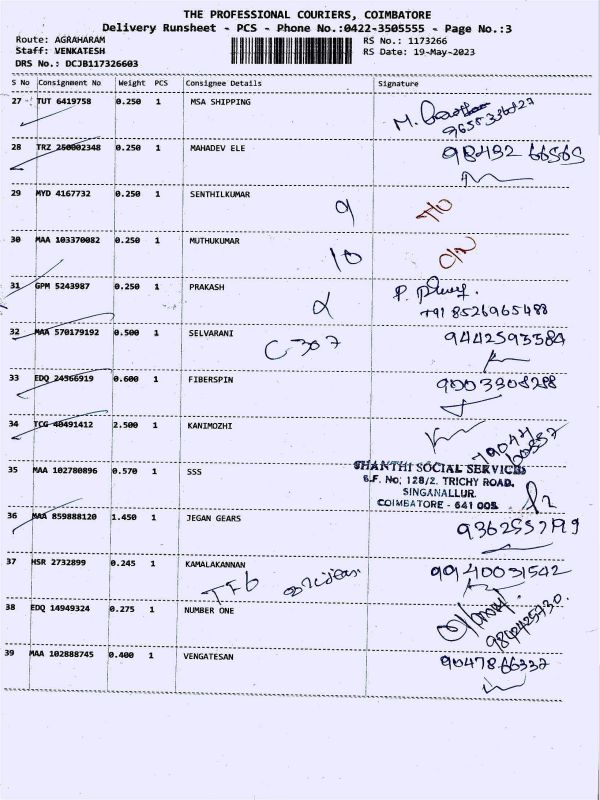 THE PROFESSIONAL COURIERS, COIMBATORE
Delivery Runsheet - PCS - Phone No.:0422-3505555 - Page No.:3
Route: AGRAHARAM RS No.: 1173266
Staff: VENKATESH RS Date: 19-May-2023
DRS No.: DCJB117326603
S No Consignment No Weight PCS Consignee Details Signature
27 TUT 6419758 0.250 1 MSA SHIPPING
28 TRZ 250002348 0.250 1 MAHADEV ELE 98432 66565
29 MYD 4167732 0.250 1 SENTHILKUMAR
30 MAA 103370082 0.250 1 MUTHUKUMAR 10
31 GPM 5243987 0.250 1 PRAKASH
+91 8526965488
32 MAA 570179192 0.500 1 SELVARANI C-307 9442593584
33 EDQ 24566919 0.600 1 FIBERSPIN 9003308288
34 TCG 40491412 2.500 1 KANIMOZHI
35 MAA 102780896 0.570 1 SSS
SHANTHI SOCIAL SERVICES
S.F. No, 128/2. TRICHY ROAD,
SINGANALLUR.
COIMBATORE - 641 005
36 MAA 859888120 1.450 1 JEGAN GEARS
37 HSR 2732899 0.245 1 KAMALAKANNAN 9940031542
38 EDQ 14949324 0.275 1 NUMBER ONE
39 MAA 102888745 0.400 1 VENGATESAN